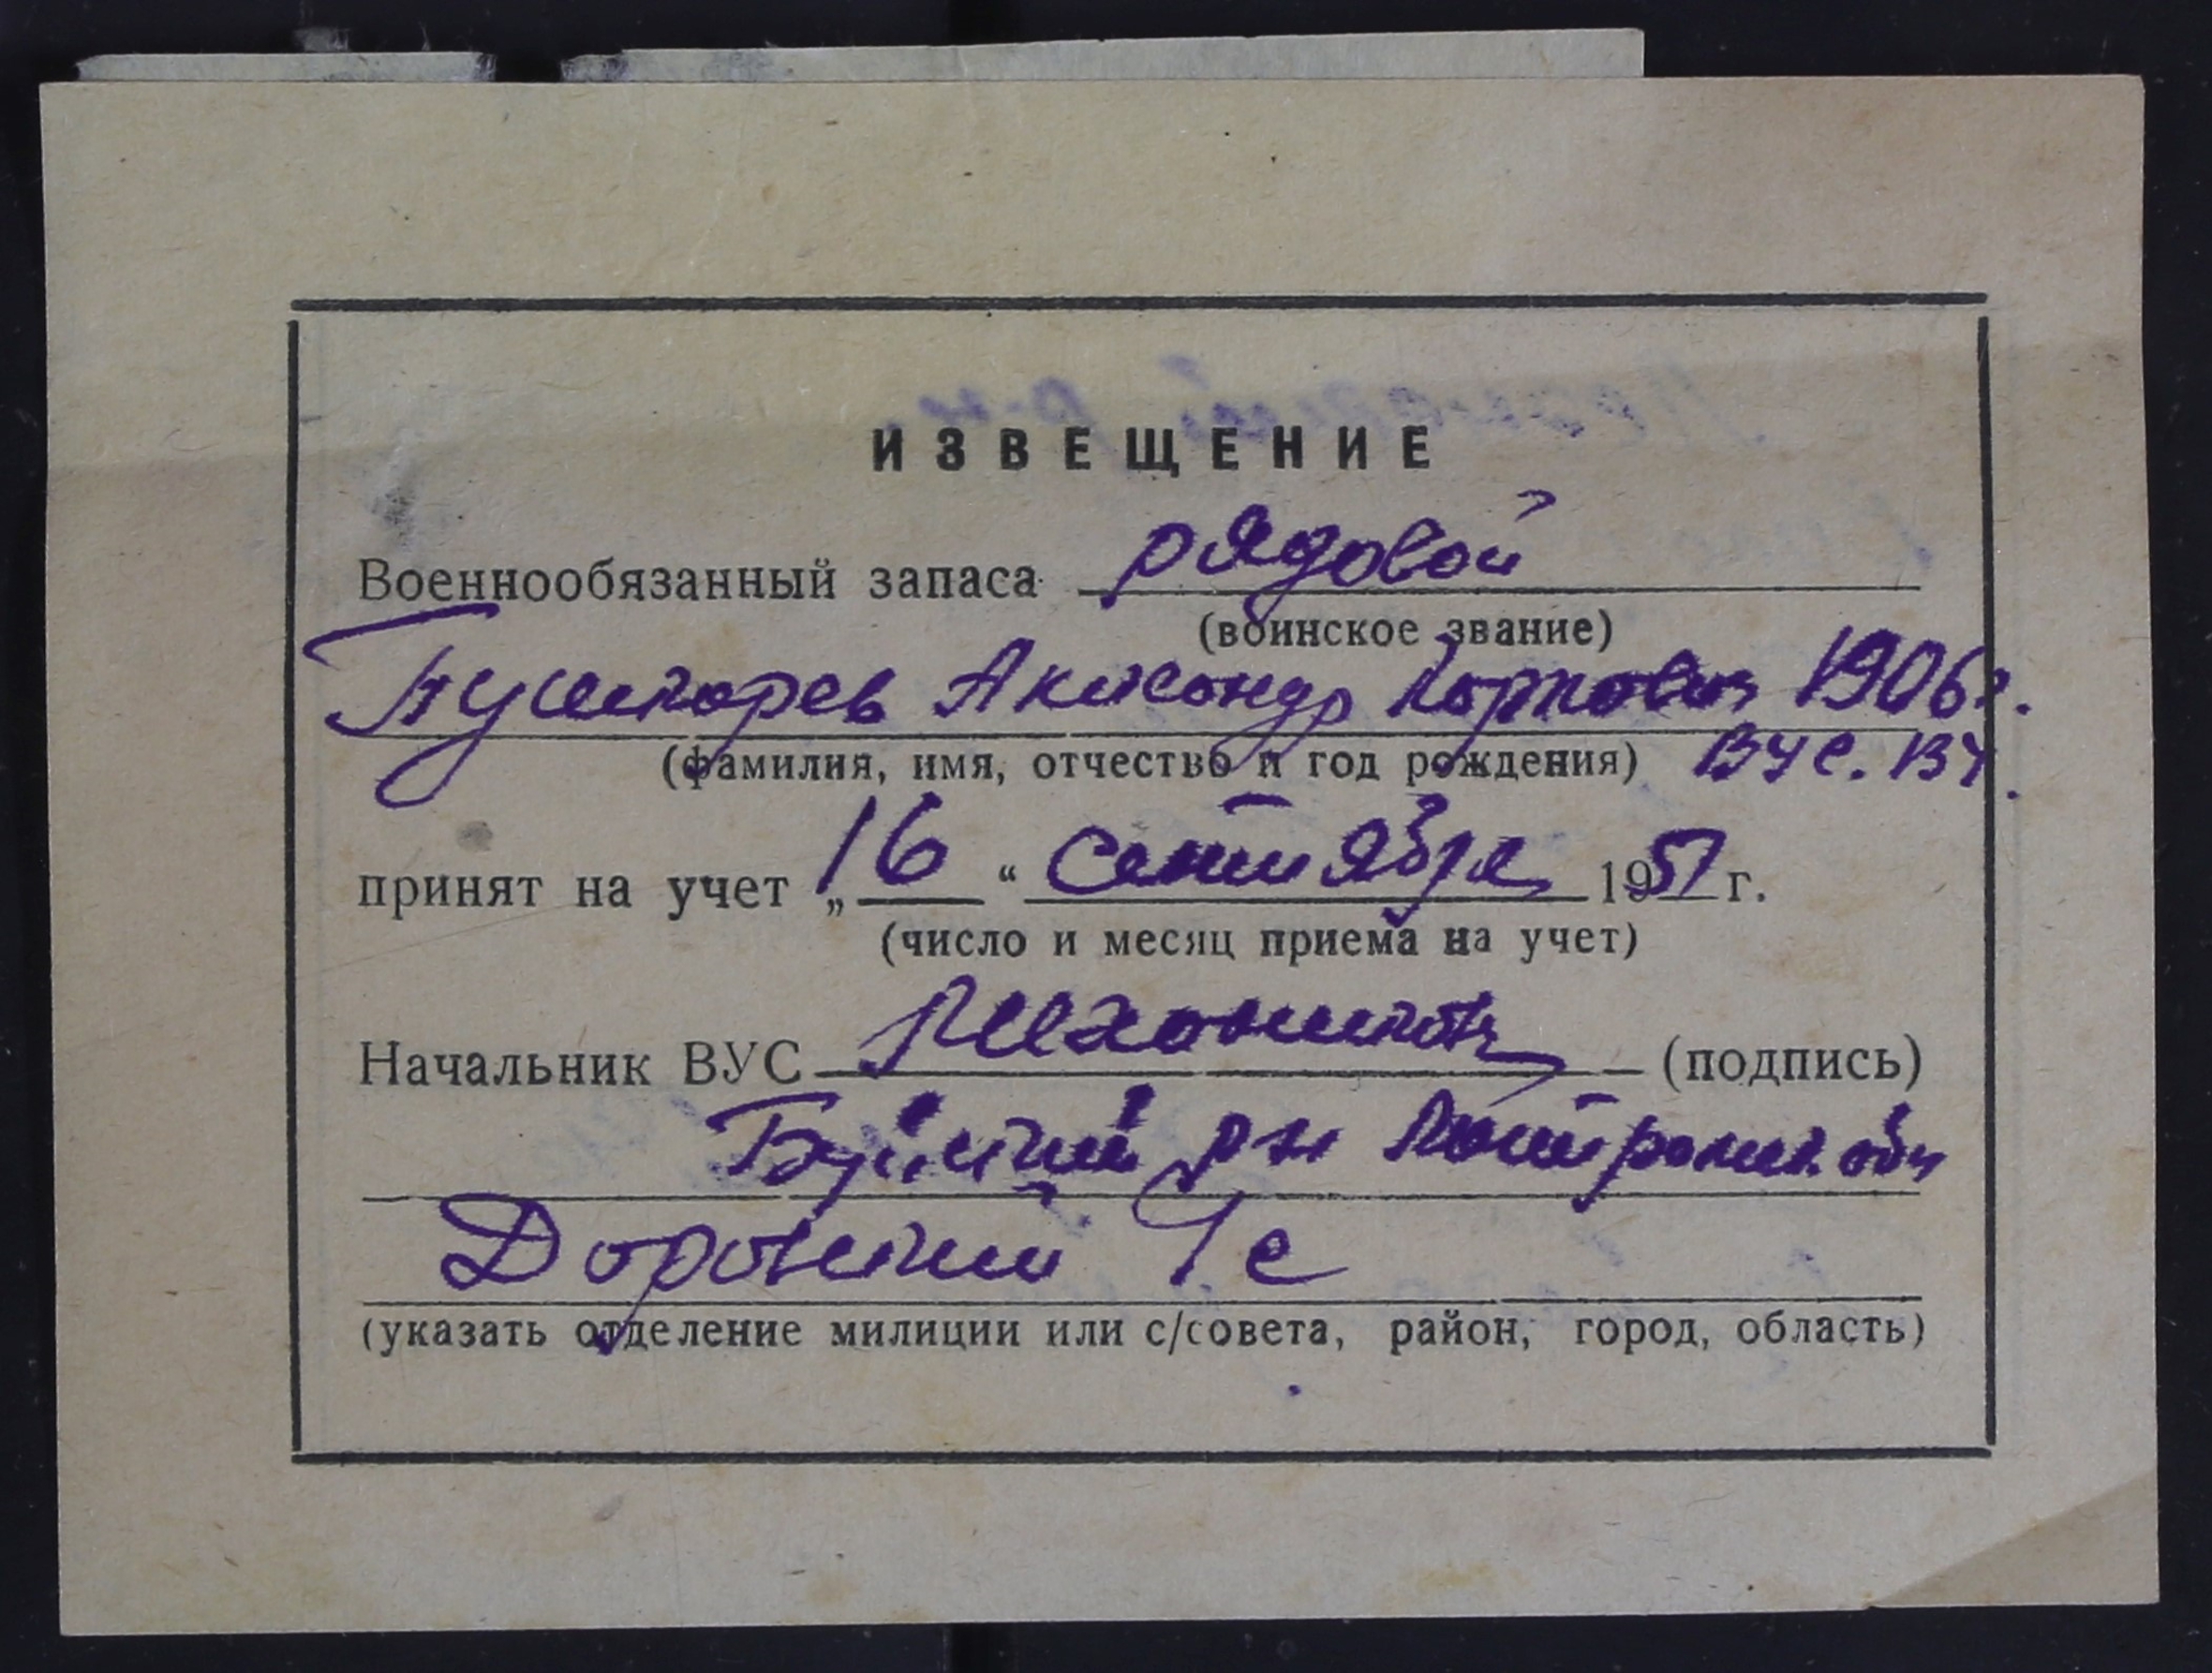 ИЗВЕЩЕНИЕ
Военнообязанный запаса рядовой
(воинское звание)
Александр Карпович 1906 г.
(фамилия, имя, отчество и год рождения) ВУС.
принят на учет „16“ сентября 1951 г.
(число и месяц приема на учет)
Начальник ВУС (подпись)
Буйский рн Костромск. обл
(указать отделение милиции или с/совета, район, город, область)